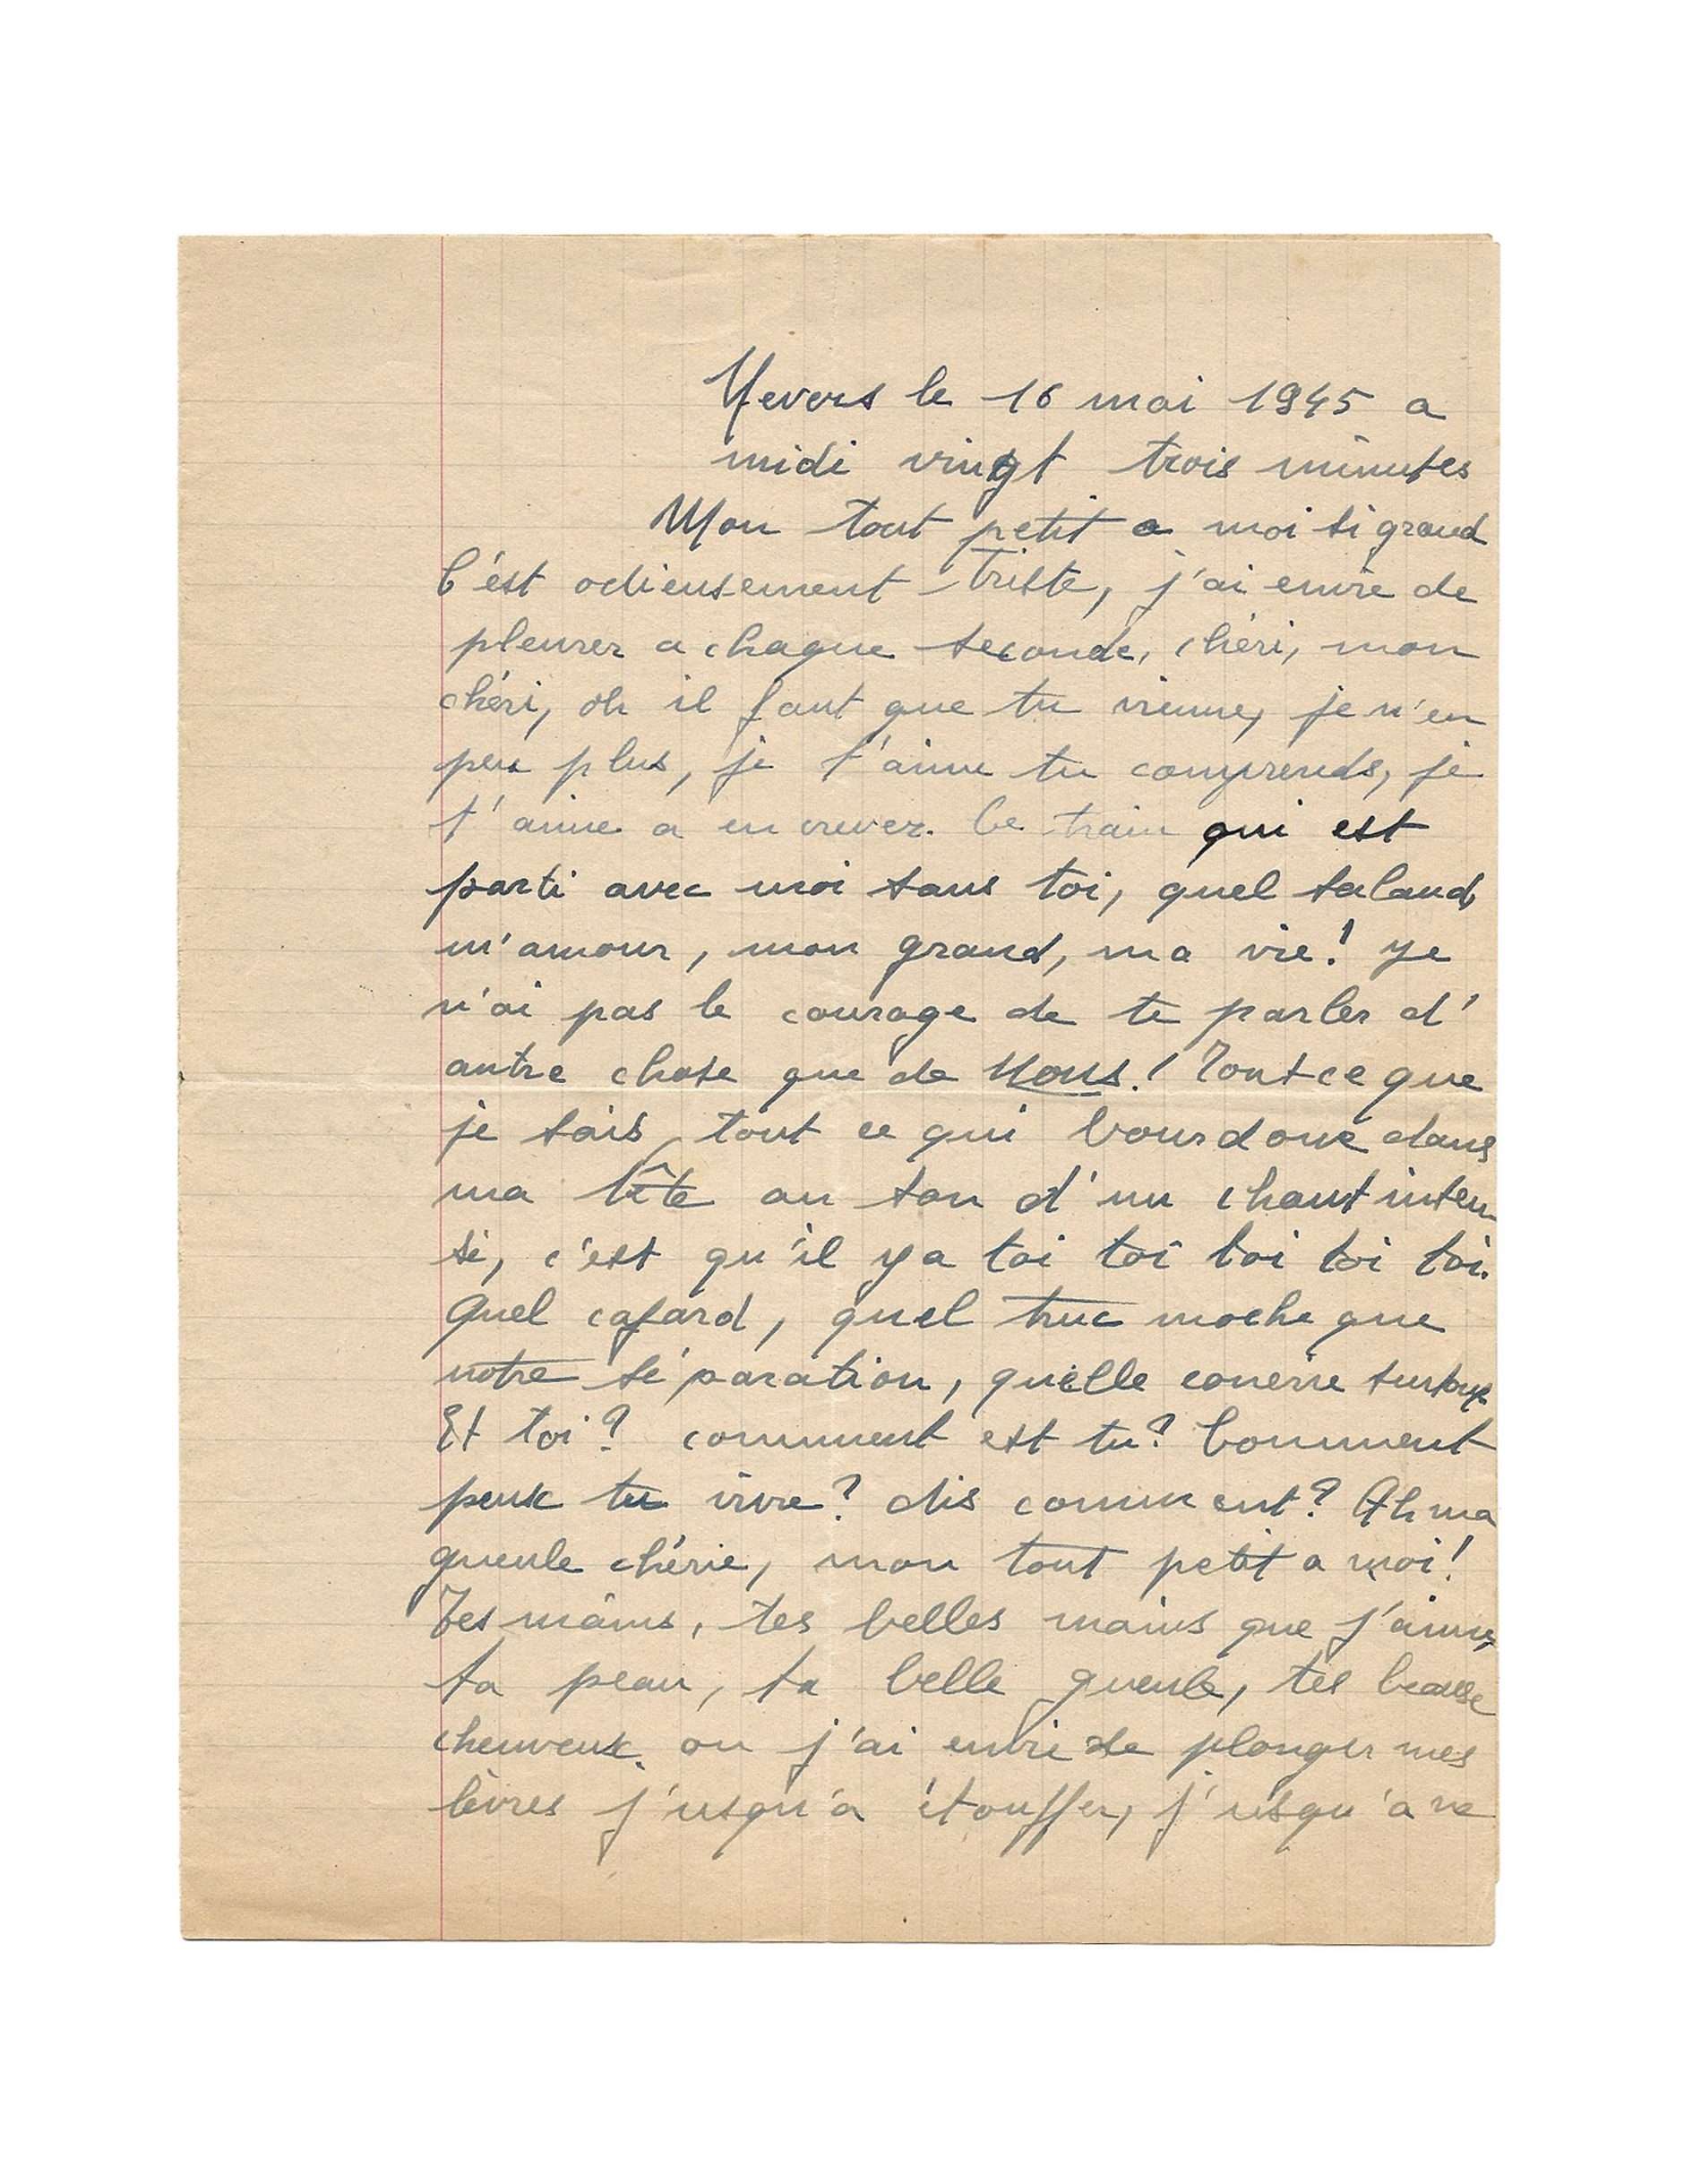 Nevers le 16 mai 1945 a
midi vingt trois minutes
Mon tout petit a moi si grand
C'est odieusement triste, j'ai envie de
pleurer a chaque seconde, chéri, mon
chéri, oh il faut que tu vienne, je n'en
peu plus, je t'aime tu comprends, je
t'aime a en crever. Ce train qui est
parti avec moi sans toi, quel salaud,
m'amour, mon grand, ma vie! Je
n'ai pas le courage de te parler d'
autre chose que de Nous! Tout ce que
je sais, tout ce qui bourdone dans
ma tête au son d'un chant inten-
se, c'est qu'il y a toi toi toi toi toi.
Quel cafard, quel truc moche que
notre séparation, quelle conerie surtout
Et toi? comment est tu? Comment
peux tu vivre? dis comment? Ah ma
gueule chérie, mon tout petit a moi!
Tes mains, tes belles mains que j'aime,
ta peau, ta belle gueule, tes beaux
cheuveux ou j'ai envie de plonger mes
lèvres j'usqu'a étouffer, j'usqu'a ne